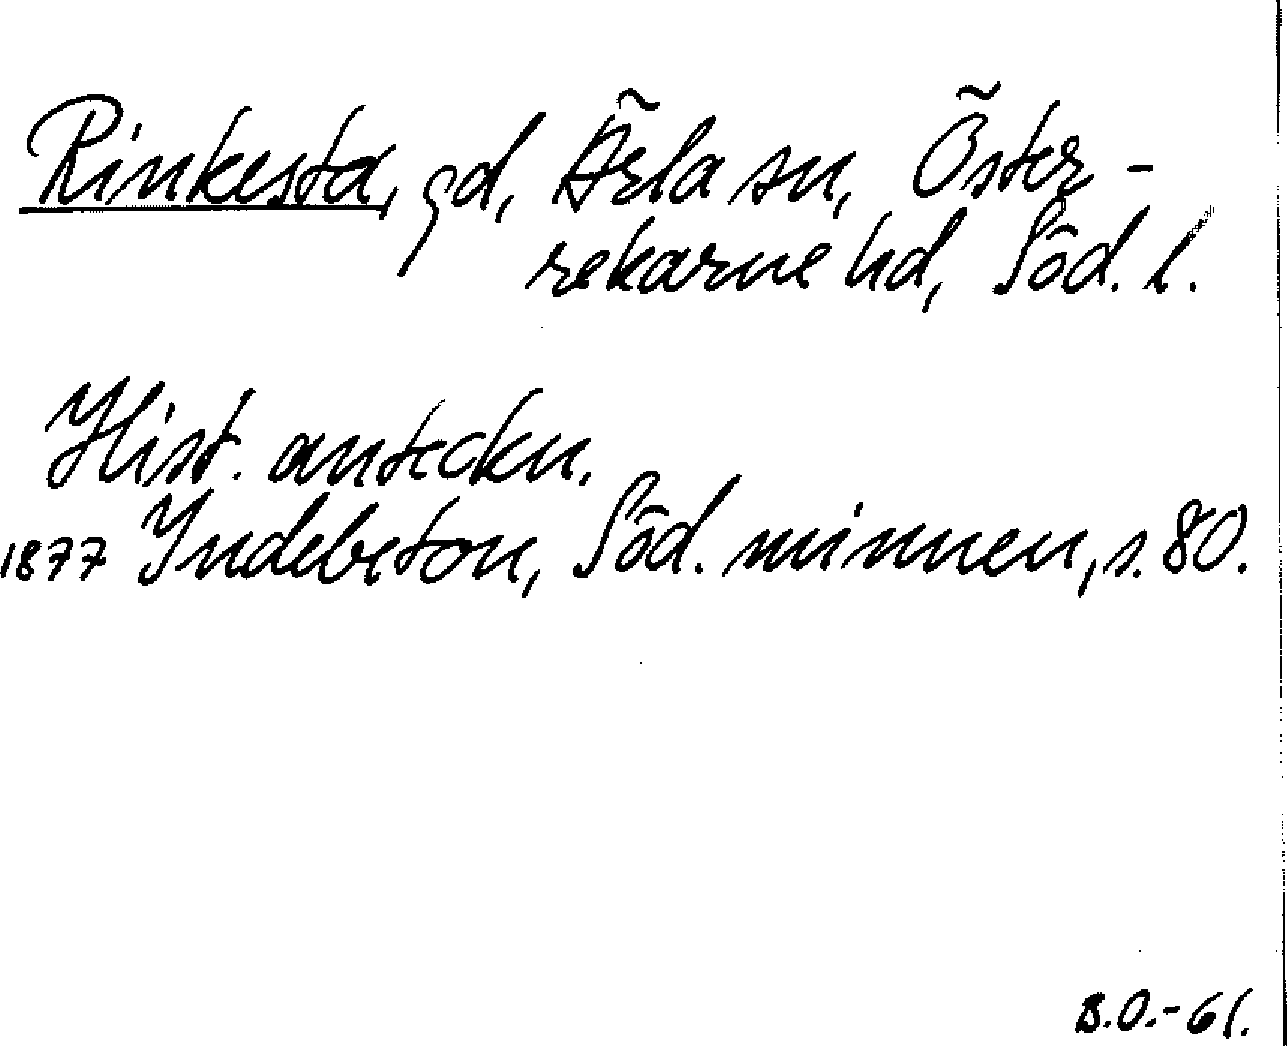 Rinkesta, gd, Ärla sn, Öster-
rekarne hd, Söd. l.
Hist. anteckn.
1877 Indebetou, Söd. minnen, s. 80.
B.O.-61.